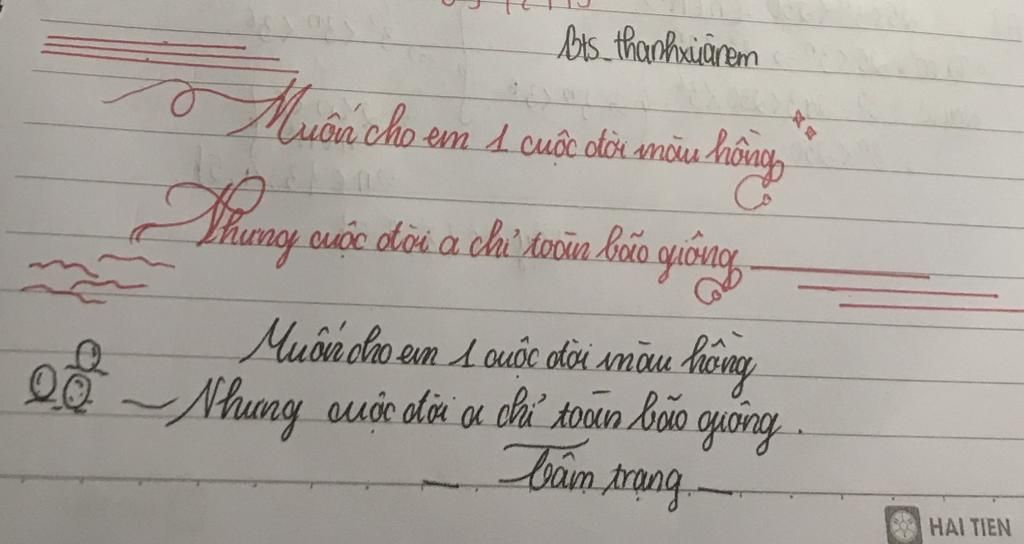 Bts_thanhxuânem
Muốn cho em 1 cuộc đời màu hồng
Nhưng cuộc đời a chỉ toàn bão giông
Muốn cho em 1 cuộc đời màu hồng
Nhưng cuộc đời a chỉ toàn bão giông.
Tâm trạng
HAI TIEN